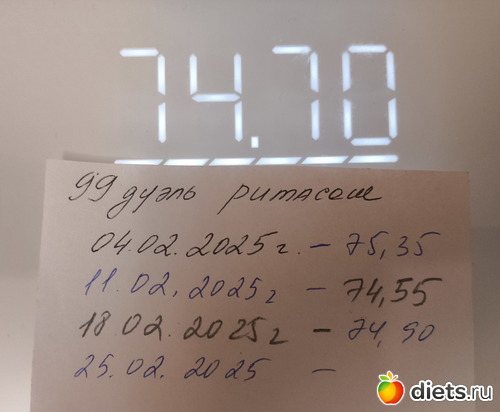 74.70
99 дуэль ритасам
04.02.2025г. – 75,35
11.02.2025г – 74,55
18.02.2025г – 74,90
25.02.2025 –
diets.ru